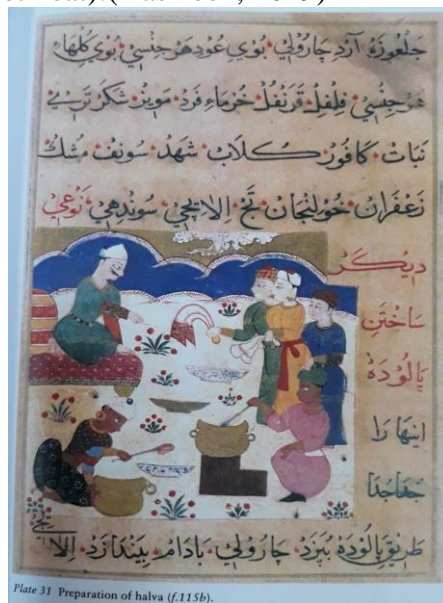 جلغوزه آرد چارولي بوي عود هر جنسي بوي كلهاء
هر جنسي فلفل قرنفل خرماء فرد مويز شكر
نبات كافور كلاب شهد سونف مشك
زعفران خولنجان الايچي سوندهي نوعي
ديكر
ساختن
پالوده
اينها را
جداجدا
طريق پالوده بپزد چارولي بادام بيندازد الايچي
Plate 31 Preparation of halva (f.115b).